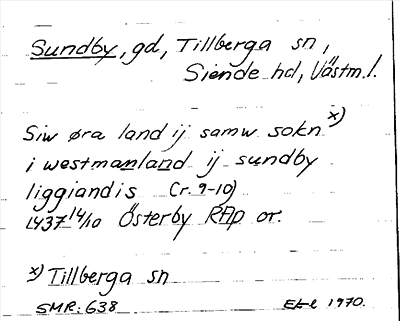 Sundby, gd, Tillberga sn,
Siende hd, Västm.l.
Siw øra land ij samw sokn x)
i westmanland ij sundby
liggiandis (r. 9-10)
1437 14/10 Österby RAp or.
x) Tillberga sn
SMR: 638 1970.